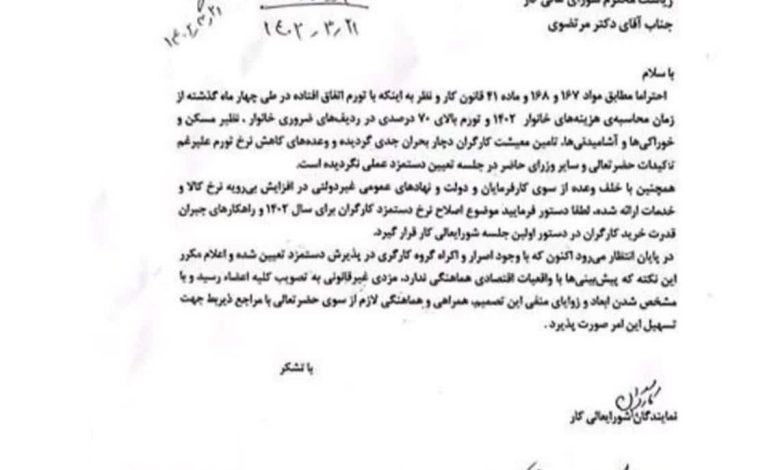 ریاست محترم شورای عالی کار
۱۴۰۲٫۳٫۲۱
۱۴۰۲٫۳٫۲۱
جناب آقای دکتر مرتضوی
با سلام
احتراما مطابق مواد ۱۶۷ و ۱۶۸ و ماده ۴۱ قانون کار و نظر به اینکه با تورم اتفاق افتاده در طی چهار ماه گذشته از
زمان محاسبه‌ی هزینه‌های خانوار ۱۴۰۲ و تورم بالای ۷۰ درصدی در ردیف‌های ضروری خانوار ، نظیر مسکن و
خوراکی‌ها و آشامیدنی‌ها، تامین معیشت کارگران دچار بحران جدی گردیده و وعده‌های کاهش نرخ تورم علیرغم
تاکیدات حضرتعالی و سایر وزرای حاضر در جلسه تعیین دستمزد عملی نگردیده است.
همچنین با خلف وعده از سوی کارفرمایان و دولت و نهادهای عمومی غیردولتی در افزایش بی‌رویه نرخ کالا و
خدمات ارائه شده، لطفا دستور فرمایید موضوع اصلاح نرخ دستمزد کارگران برای سال ۱۴۰۲ و راهکارهای جبران
قدرت خرید کارگران در دستور اولین جلسه شورایعالی کار قرار گیرد.
در پایان انتظار می‌رود اکنون که با وجود اصرار و اکراه گروه کارگری در پذیرش دستمزد تعیین شده و اعلام مکرر
این نکته که پیش‌بینی‌ها با واقعیات اقتصادی هماهنگی ندارد، مزدی غیرقانونی به تصویب کلیه اعضاء رسید و با
مشخص شدن ابعاد و زوایای منفی این تصمیم، همراهی و هماهنگی لازم از سوی حضرتعالی با مراجع ذیربط جهت
تسهیل این امر صورت پذیرد .
با تشکر
نمایندگان کارگران شورایعالی کار